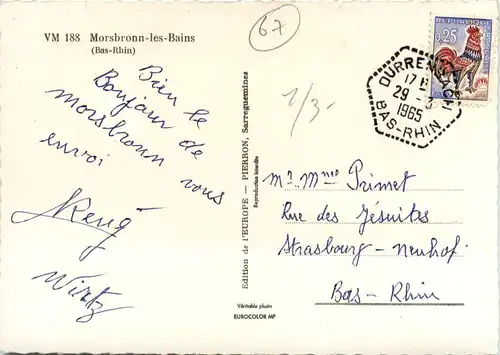 VM 188 Morsbronn-les-Bains
(Bas-Rhin)
67
Bien le
Bonjour de
morsbronn vous
envoi
Wurtz
1/3-
Edition de l'EUROPE — PIERRON, Sarreguemines
Reproduction interdite
Véritable photo
EUROCOLOR MP
25
DURRENBACH
17 H
29 - 3
1965
BAS-RHIN
Mr. Mme Primet
Rue des Jésuites
Strasbourg - Neuhof
Bas - Rhin